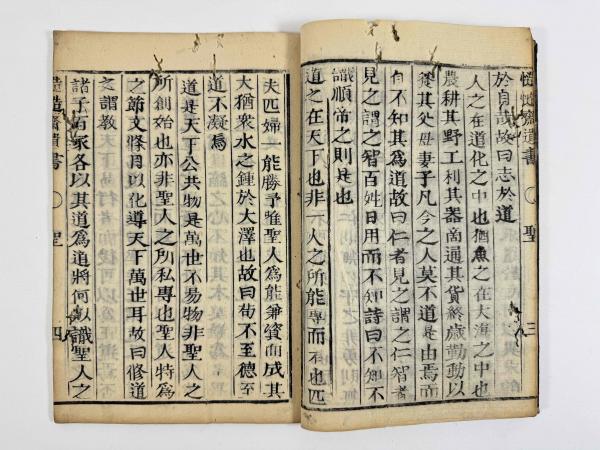 慥慥齋遺書
聖
三
於自誠故曰志於道
人之在道化之中也猶魚之在大海之中也
農耕其野工利其器商通其貨終歲勤動以
從其父母妻子凡今之人莫不道是由焉而
自不知其爲道故曰仁者見之謂之仁智者
見之謂之智百姓日用而不知詩曰不知不
識順帝之則是也
道之在天下也非一人之所能學而不也匹
夫匹婦一能勝予唯聖人爲能兼資而成其
大猶衆水之鍾於大澤也故曰苟不至德至
道不凝焉
道是天下公共物是萬世不易物非聖人之
所創始也亦非聖人之所私專也聖人特爲
之節文條目以化導天下萬世耳故曰修道
之謂教
諸子百家各以其道爲道將何以識聖人之
慥慥齋遺書
聖
四